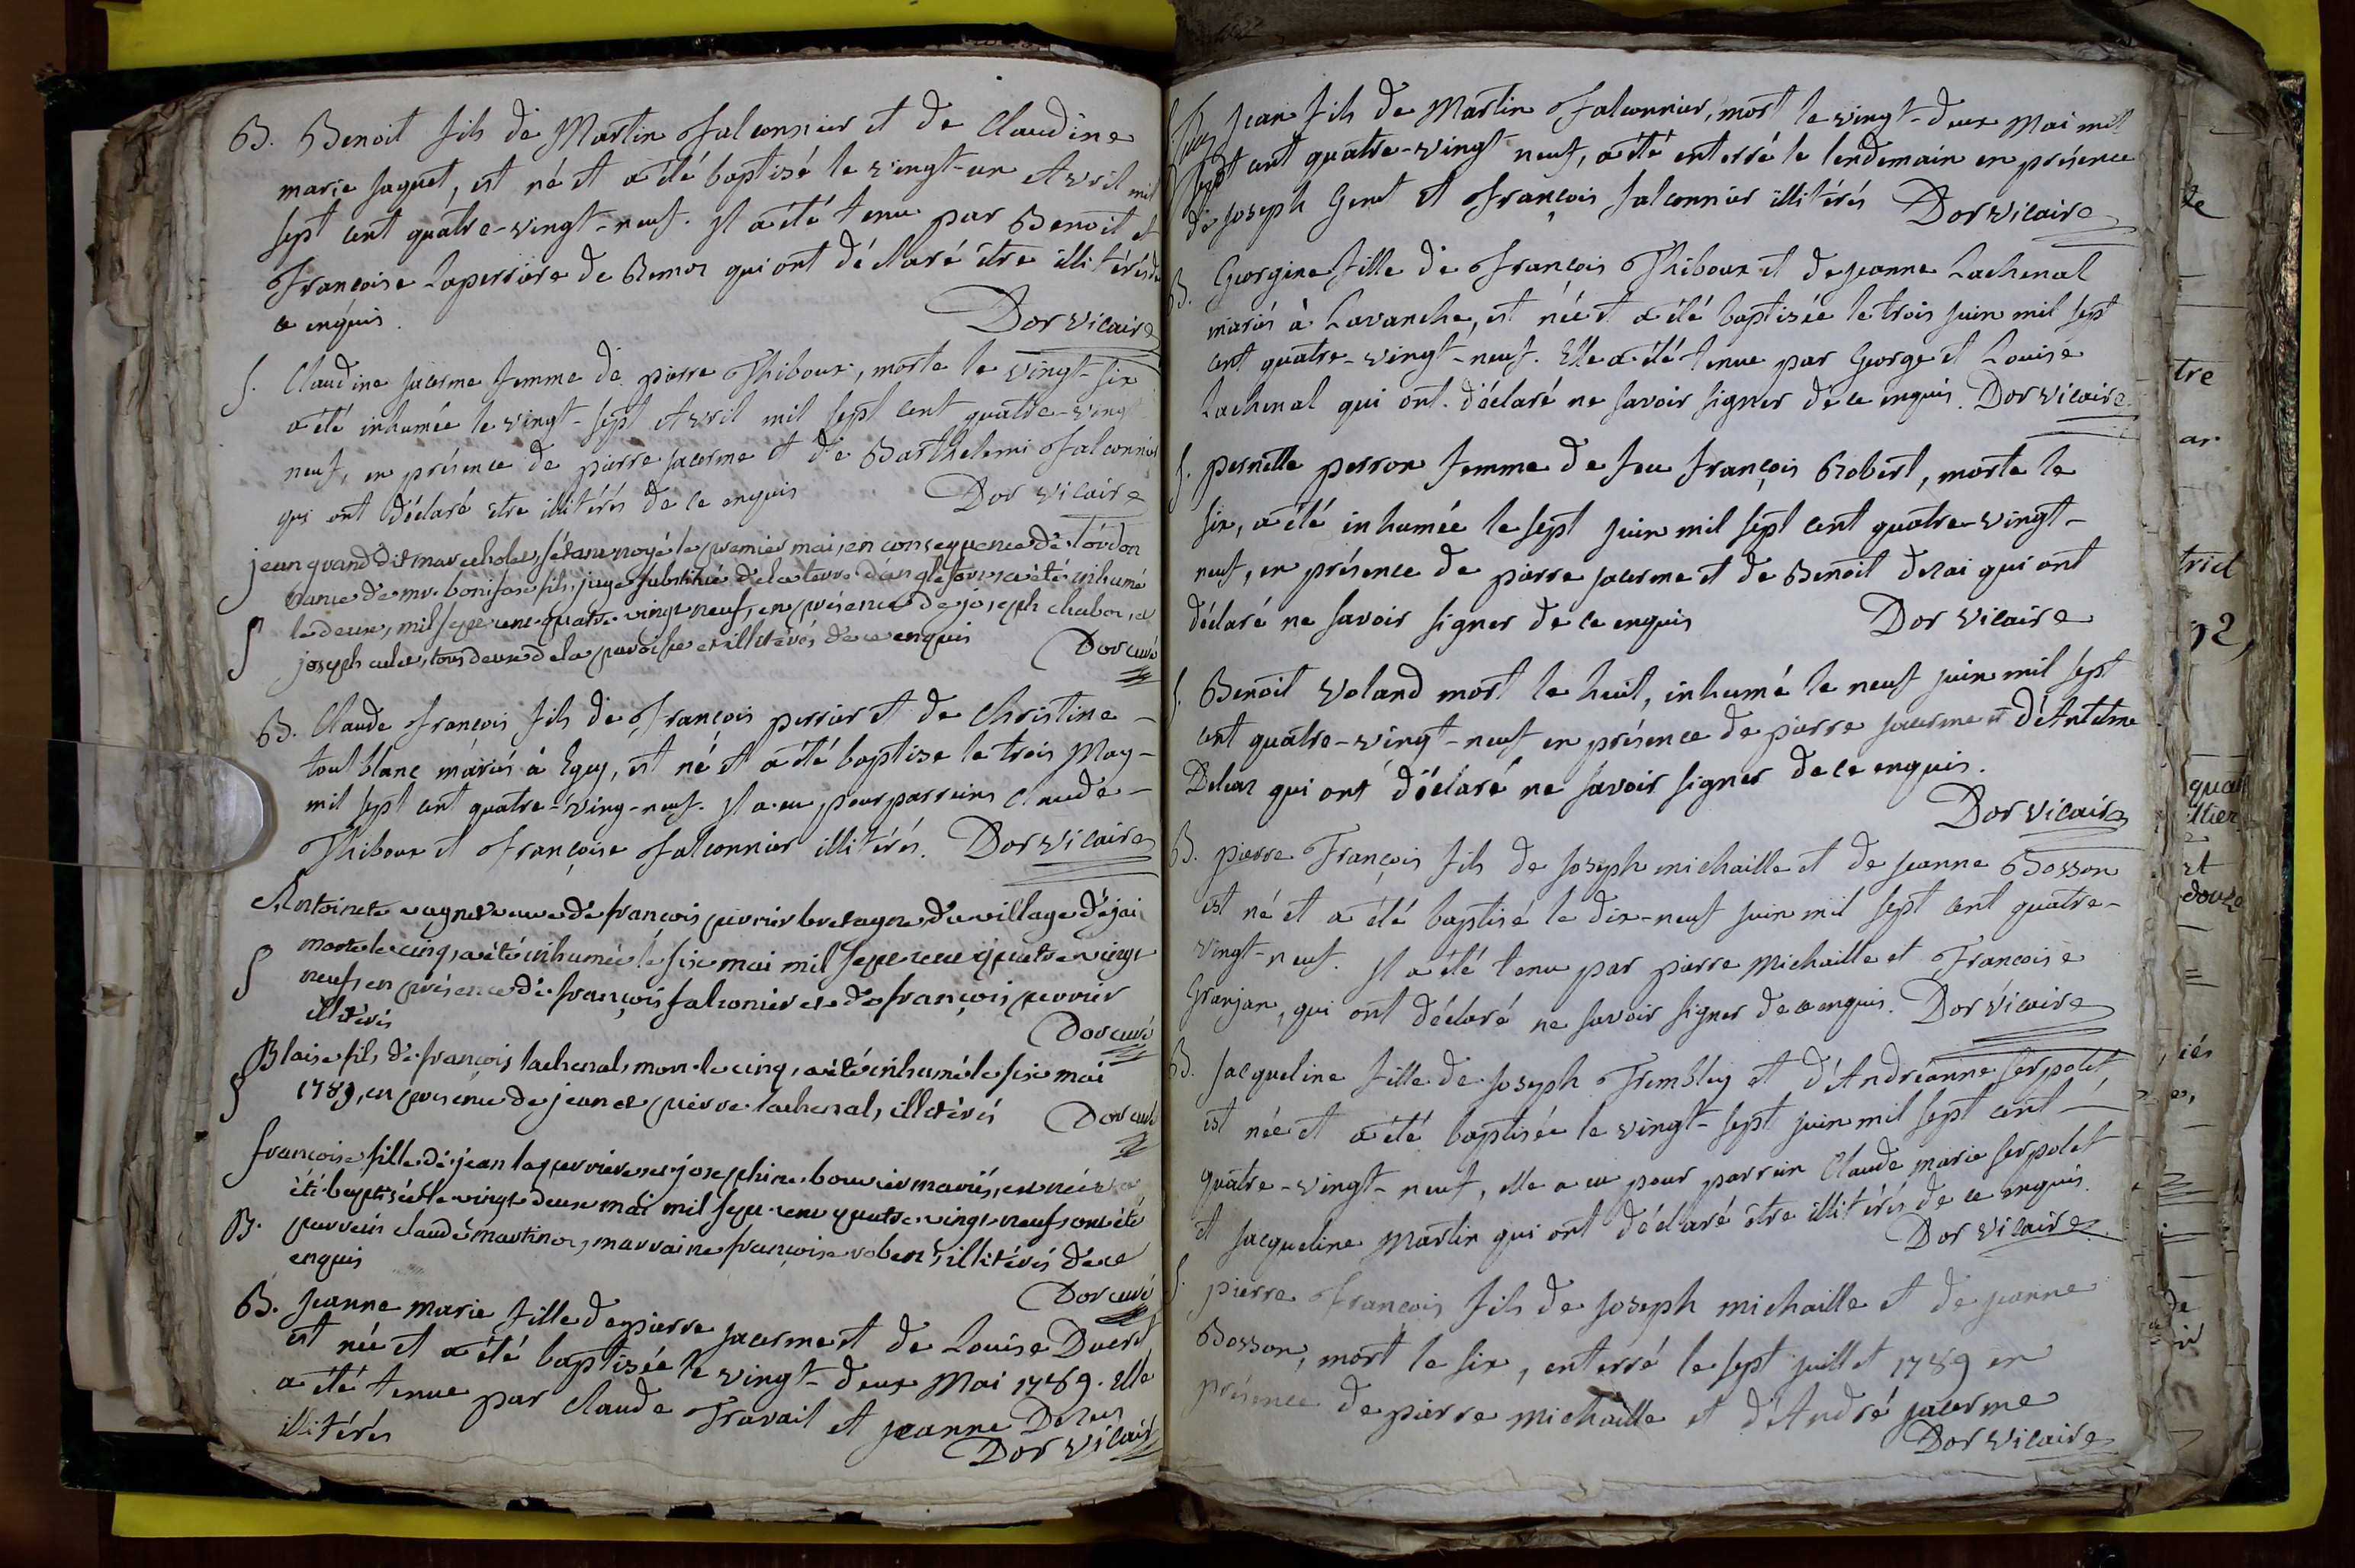 B. Benoit fils de Martin Falconnier et de Claudine
marie Jaquet, est né et a été baptisé le vingt-un Avril mil
sept cent quatre-vingt-neuf. Il a été tenu par Benoit et
Françoise Laperriere de Bemoz qui ont déclaré être illitérés de
ce enquis. Dor Vicaire
S. Claudine Jacerme femme de pierre Thiboux, morte le vingt-six
a été inhumée le vingt-sept Avril mil sept cent quatre-vingt
neuf, en présence de pierre Jacerme et de Barthelemi Falconnier
qui ont déclaré etre illitérés de ce enquis Dor Vicaire
jean grand dit s'étant noyé le premier mai, en consequence de l'ordon
nance de mr. boniface fils, juge substitué de la terre a été inhumé
S le deux, mil sept cent quatre vingt neuf, en présence de joseph chabou, et
joseph culet, tous deux de la paroisse et illitérés de ce enquis Dor curé
B. Claude François fils de François perrier et de Christine
tout blanc mariés à Egey, est né et a été baptise le trois May
mil sept cent quatre-ving-neuf. Il a eu pour parreins Claude
Thiboux et Françoise Falconnier illitérés. Dor Vicaire
Antoinete vagnet veuve de françois perrier bretagne du village d'éjai
morte le cinq, a été inhumée le six mai mil sept cent quatre vingt
S neuf, en présence de françois falconier et de françois perrier
illitérés Dor curé
Blaise fils de françois lachenal, mort le cinq, a été inhumé le six mai
S 1789, en présence de jean et pierre lachenal, illitérés Dor curé
francoise fille de jean laperriere et josephine bouvier mariés, est née et a
été baptisée le vingt deux mai mil sept cent quatre vingt neuf, ont été
B. parrein claude martinet, marraine françoise robert, illitérés de ce
enquis Dor curé
B. Jeanne marie fille de pierre Jacerme et de Louise Duert
est née et a été baptisée le vingt-deux Mai 1789. elle
a été tenue par Claude Travail et jeanne Deluez
illitérés Dor Vicaire
S. Jean fils de Martin Falconnier, mort le vingt-deux Mai mil
sept cent quatre-vingt neuf, a été enterré le lendemain en présence
de Joseph Genet et François falconnier illitérés Dor Vicaire
B. Georgine fille de François Thiboux et de jeanne Lachenal
mariés à Lavanche, est née et a été baptisée le trois juin mil sept
cent quatre-vingt-neuf. Elle a été tenue par George et Louise
Lachenal qui ont déclaré ne savoir signer de ce enquis. Dor Vicaire
S. pernette perron femme de feu françois Robert, morte le
six, a été inhumée le sept juin mil sept cent quatre-vingt-
neuf, en présence de pierre jacerme et de Benoit deloi qui ont
déclaré ne savoir signer de ce enquis Dor Vicaire
S. Benoit Voland mort le huit, inhumé le neuf juin mil sept
cent quatre-vingt-neuf en présence de pierre jacerme et d'Antelme
Deluez qui ont déclaré ne savoir signer de ce enquis.
Dor Vicaire
B. pierre François fils de joseph michaille et de jeanne Bosson
est né et a été baptisé le dix-neuf juin mil sept cent quatre-
vingt-neuf. Il a été tenu par pierre Michaille et Francoise
Granjan, qui ont déclaré ne savoir signer de ce enquis. Dor Vicaire
B. Jacqueline fille de Joseph Trembley et d'Andréanne Serpolet
est née et a été baptisée le vingt-sept juin mil sept cent
quatre-vingt-neuf, elle a eu pour parrein Claude marie serpolet
et jacqueline Martin qui ont déclaré être illitérés de ce enquis.
Dor Vicaire
S. pierre François fils de Joseph michaille et de jeanne
Bosson, mort le six, enterré le sept juillet 1789 en
présence de pierre michaille et d'André jacerme
Dor Vicaire